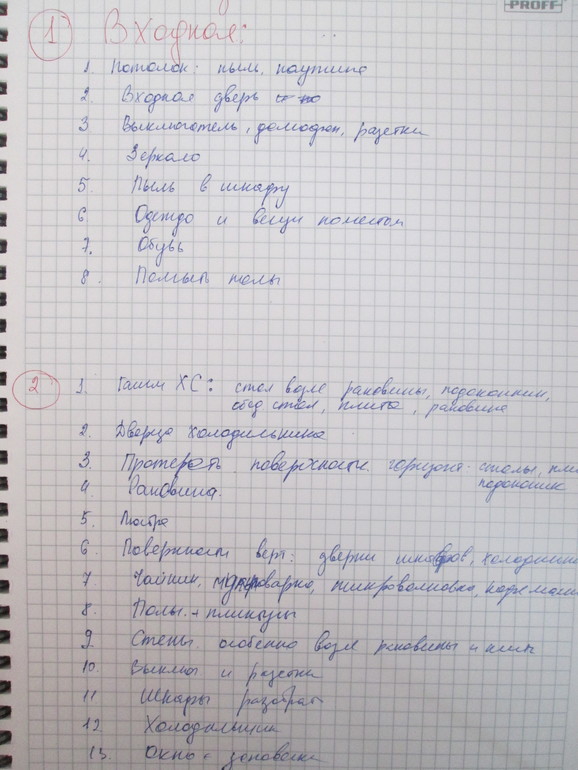 PROFF
1 Входная:
1. Потолок: пыль, паутина
2. Входная дверь
3 Выключатель, домофон, разетки
4. Зеркало
5. Пыль в шкафу
6. Одежда и вещи по местам
7. Обувь
8. Помыть полы
2 1. Гасим ХС: стол возле раковины, подоконник,
обед стол, плита, раковина
2. Дверца холодильника
3. Протереть поверхности горизонт. столы,
подоконник
4. Раковина.
5. Люстра
6 Поверхности верт: дверки шкафов,
7 Чайник, микроволновка,
8. Полы + плинтусы
9. Стены особенно возле раковины и плиты
10. Выключ и разетки
11 Шкафы разобрать
12. Холодильник
13. Окно + занавески